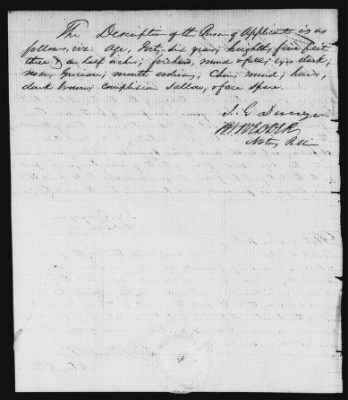 The Description of the Person of Applicant is as
follows, viz: Age, Forty six years; heighth, five feet
three & an half inches; forehead, round & full; eyes dark;
nose, Grecian; mouth medium; Chin, round; hair,
dark brown; complexion Sallow, & face spare.
Notary Public